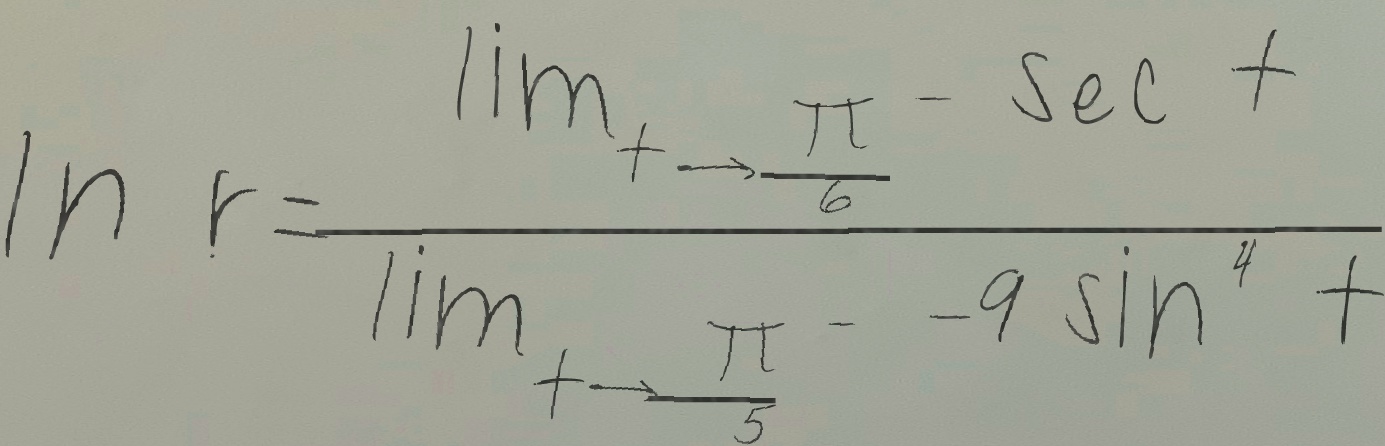 \ln r = \frac{\lim_{t \to \frac{\pi}{6}^-} \sec t}{\lim_{t \to \frac{\pi}{5}^-} -9 \sin^4 t}